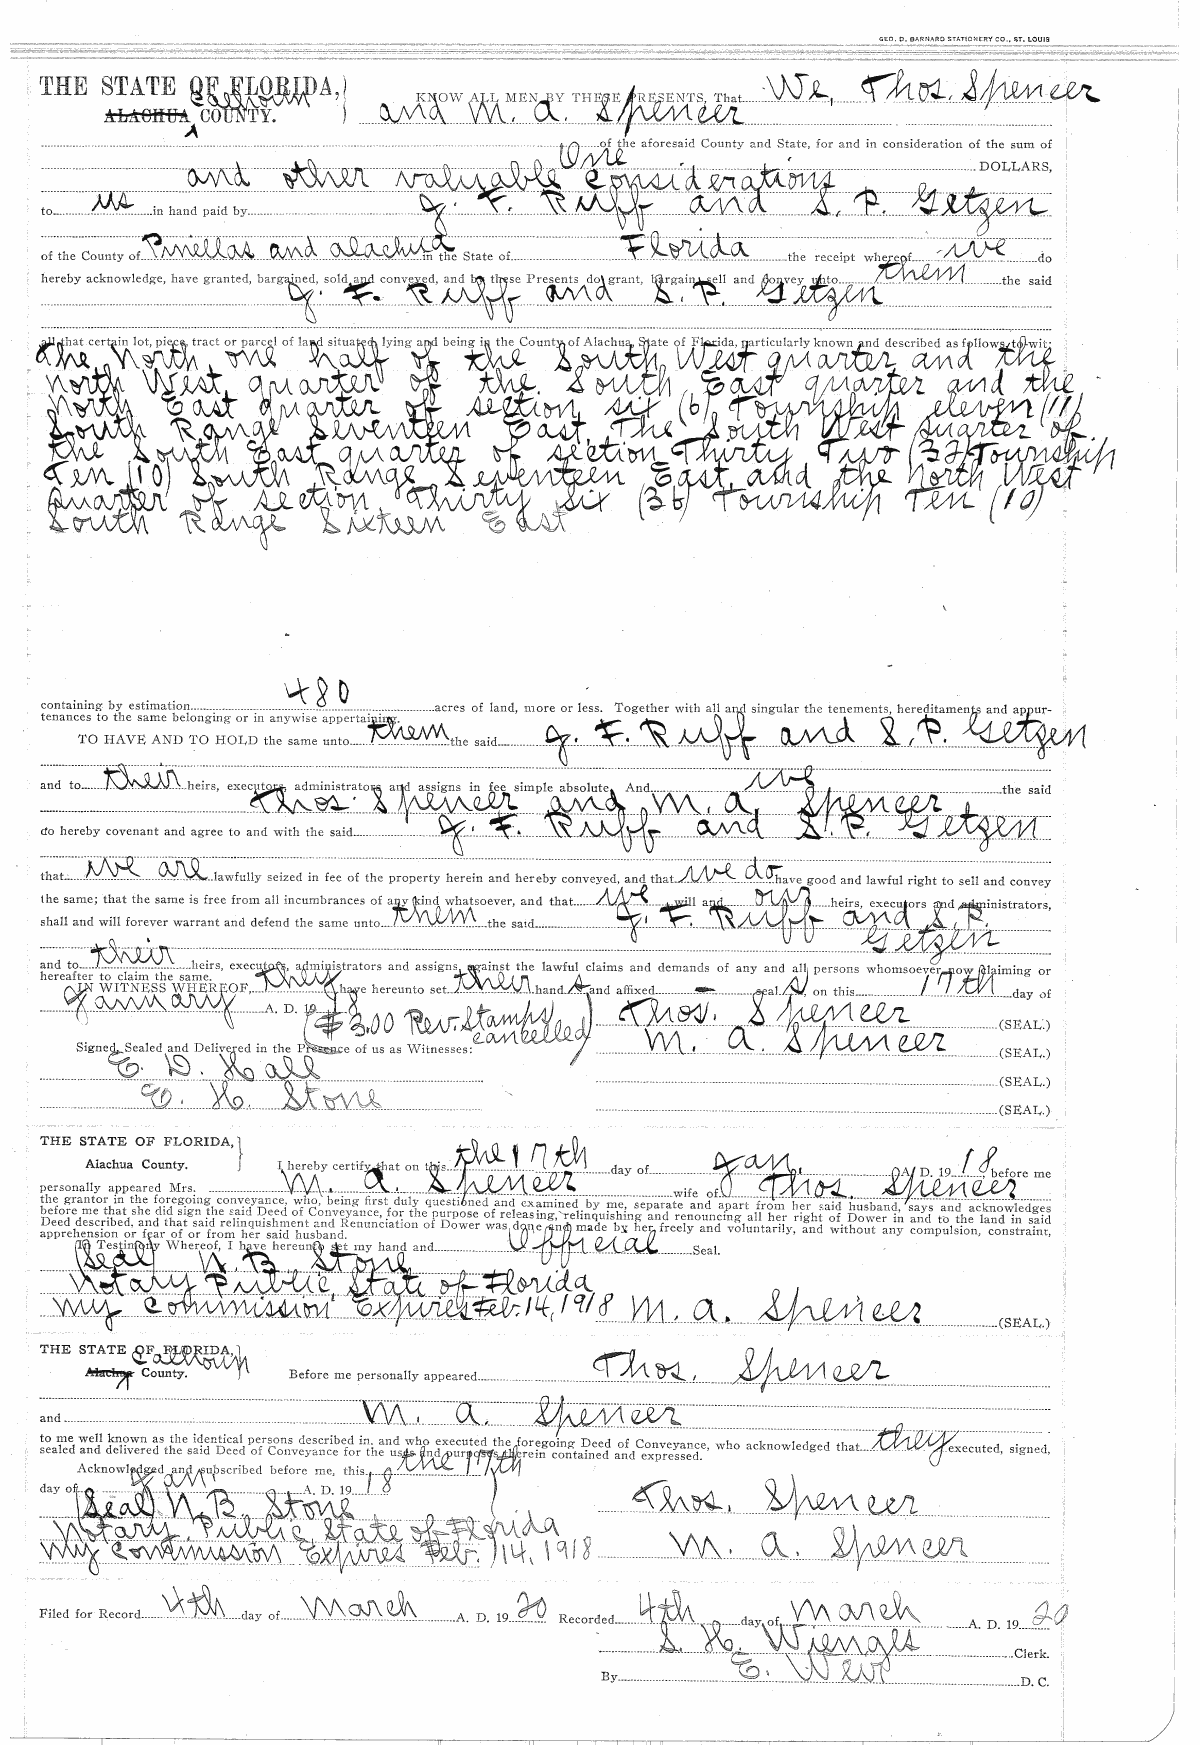 GEO. D. BARNARD STATIONERY CO., ST. LOUIS
THE STATE OF FLORIDA,
Calhoun
ALACHUA COUNTY.
KNOW ALL MEN BY THESE PRESENTS, That We, Thos. Spencer
and M. A. Spencer
of the aforesaid County and State, for and in consideration of the sum of
One
DOLLARS,
and other valuable considerations
to us in hand paid by J. F. Ruff and S. P. Getzen
of the County of Pinellas and Alachua in the State of Florida the receipt whereof we do
hereby acknowledge, have granted, bargained, sold and conveyed, and by these Presents do grant, bargain, sell and convey unto them the said
J. F. Ruff and S. P. Getzen
all that certain lot, piece, tract or parcel of land situated, lying and being in the County of Alachua, State of Florida, particularly known and described as follows, to-wit:
The North one half of the South West quarter and the
North West quarter of the South East quarter and the
North East quarter of section six (6) Township eleven (11)
South Range Seventeen East, The South West quarter of
the South East quarter of section Thirty Two (32) Township
Ten (10) South Range Seventeen East, and the North West
quarter of section Thirty Six (36) Township Ten (10)
South Range Sixteen East
containing by estimation 480 acres of land, more or less. Together with all and singular the tenements, hereditaments and appur-
tenances to the same belonging or in anywise appertaining.
TO HAVE AND TO HOLD the same unto them the said J. F. Ruff and S. P. Getzen
and to their heirs, executors, administrators and assigns in fee simple absolute. And we the said
Thos. Spencer and M. A. Spencer
do hereby covenant and agree to and with the said J. F. Ruff and S. P. Getzen
that we are lawfully seized in fee of the property herein and hereby conveyed, and that we do have good and lawful right to sell and convey
the same; that the same is free from all incumbrances of any kind whatsoever, and that we will and our heirs, executors and administrators,
shall and will forever warrant and defend the same unto them the said J. F. Ruff and S. P.
Getzen
and to their heirs, executors, administrators and assigns, against the lawful claims and demands of any and all persons whomsoever now claiming or
hereafter to claim the same.
IN WITNESS WHEREOF, they have hereunto set their hand s and affixed - seal s, on this 17th day of
January A. D. 1918 Thos. Spencer (SEAL.)
($3.00 Rev. Stamps
cancelled)
M. A. Spencer (SEAL.)
Signed, Sealed and Delivered in the Presence of us as Witnesses:
E. D. Hall (SEAL.)
E. H. Stone (SEAL.)
THE STATE OF FLORIDA,
Alachua County.
I hereby certify that on this the 17th day of Jan. A. D. 1918 before me
personally appeared Mrs. M. A. Spencer wife of Thos. Spencer
the grantor in the foregoing conveyance, who, being first duly questioned and examined by me, separate and apart from her said husband, says and acknowledges
before me that she did sign the said Deed of Conveyance, for the purpose of releasing, relinquishing and renouncing all her right of Dower in and to the land in said
Deed described, and that said relinquishment and Renunciation of Dower was done and made by her freely and voluntarily, and without any compulsion, constraint,
apprehension or fear of or from her said husband.
In Testimony Whereof, I have hereunto set my hand and Official Seal.
(Seal) N. B. Stone
Notary Public, State of Florida
My Commission Expires Feb. 14, 1918 M. A. Spencer (SEAL.)
THE STATE OF FLORIDA,
Calhoun
Alachua County.
Before me personally appeared Thos. Spencer
and M. A. Spencer
to me well known as the identical persons described in, and who executed the foregoing Deed of Conveyance, who acknowledged that they executed, signed,
sealed and delivered the said Deed of Conveyance for the uses and purposes therein contained and expressed.
Acknowledged and subscribed before me, this the 17th
day of Jan. A. D. 1918
(Seal) N. B. Stone Thos. Spencer
Notary Public State of Florida
My Commission Expires Feb. 14, 1918 M. A. Spencer
Filed for Record 4th day of March A. D. 1920 Recorded 4th day of March A. D. 1920
S. H. Wienges Clerk.
By E. Weir D. C.